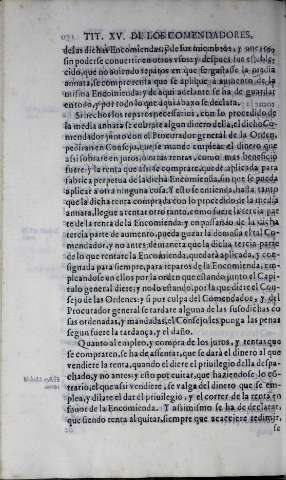 TIT. XV. DE LOS COMENDADORES,
de las dichas Encomiendas, y de sus
sin poderse convertir en otros usos: y despues fue estable
cido, que no aviendo reparos en que se gastasse la media
annata, se compre renta que se aplique à aumento de la
misma Encomienda: y de aqui adelante se ha de guardar
en todo, y por todo lo que aqui abaxo se declara.
Si hechos los reparos necessarios, con lo procedido de
la media annata se cobrare algun dinero della, el dicho Co-
mendador junto con el Procurador general de la Orden,
pediran en Consejo, que se mande emplear el dinero que
assi sobrare en juros, ò otras rentas, como mas beneficio
fuere: y la renta que assi se comprare, quede aplicada para
fabrica perpetua de la dicha Encomienda, sin que se pueda
aplicar a otra ninguna cosa. Y esto se entienda, hasta tanto
que la dicha renta comprada con lo procedido de la media
annata, llegue a rentar otro tanto, como fuere la tercia par
te de la renta de la Encomienda: y en passando de la dicha
tercia parte de aumento, pueda gozar la demasia el tal Co
mendador, y no antes: de manera que la dicha tercia parte
de lo que rentare la Encomienda, quedarà aplicada, y con-
signada para siempre, para reparos de la Encomienda, em-
pleandose en ellos por la orden que estando junto el Capi-
tulo general diere; y no lo estando, por la que diere el Con
sejo de las Ordenes: y si por culpa del Comendador, y del
Procurador general se tardare alguna de las susodichas co
sas ordenadas, y mandadas, el Consejo les ponga las penas
segun fuere la tardança, y el daño.
Quanto al empleo, y compra de los juros, y rentas que
se compraren, se ha de assentar, que se darà el dinero al que
vendiere la renta, quando el diere el privilegio della despa-
chado, y no antes: y esto por euitar, que haziendose lo co-
trario, el que assi vendiere, se valga del dinero que se em-
plea, y dilate el dar el privilegio, y el correr de la renta en
favor de la Encomienda. Y assimismo se ha de declarar,
que siendo renta al quitar, siempre que acaeciere redimir,
se